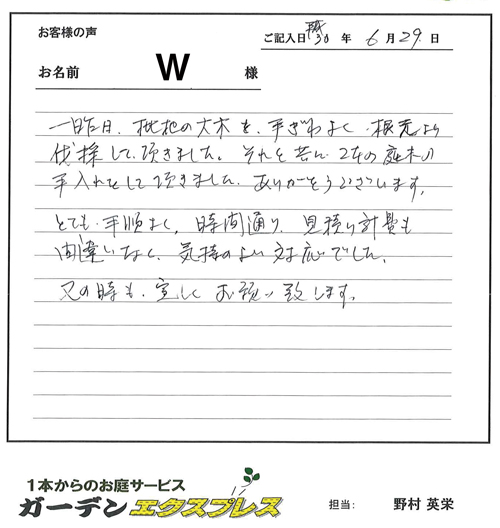 お客様の声
ご記入日 平成30 年 6 月 29 日
お名前 W 様
一昨日、枇杷の大木を、手ぎわよく、根元より
伐採して頂きました。それと共に、2本の庭木の
手入れをして頂きました。ありがとうございます。
とても、手順よく、時間通り、見積り計費も
間違いなく、気持のよい対応でした。
又の時も、宜しくお願い致します。
1本からのお庭サービス
ガーデンエクスプレス
担当: 野村 英栄